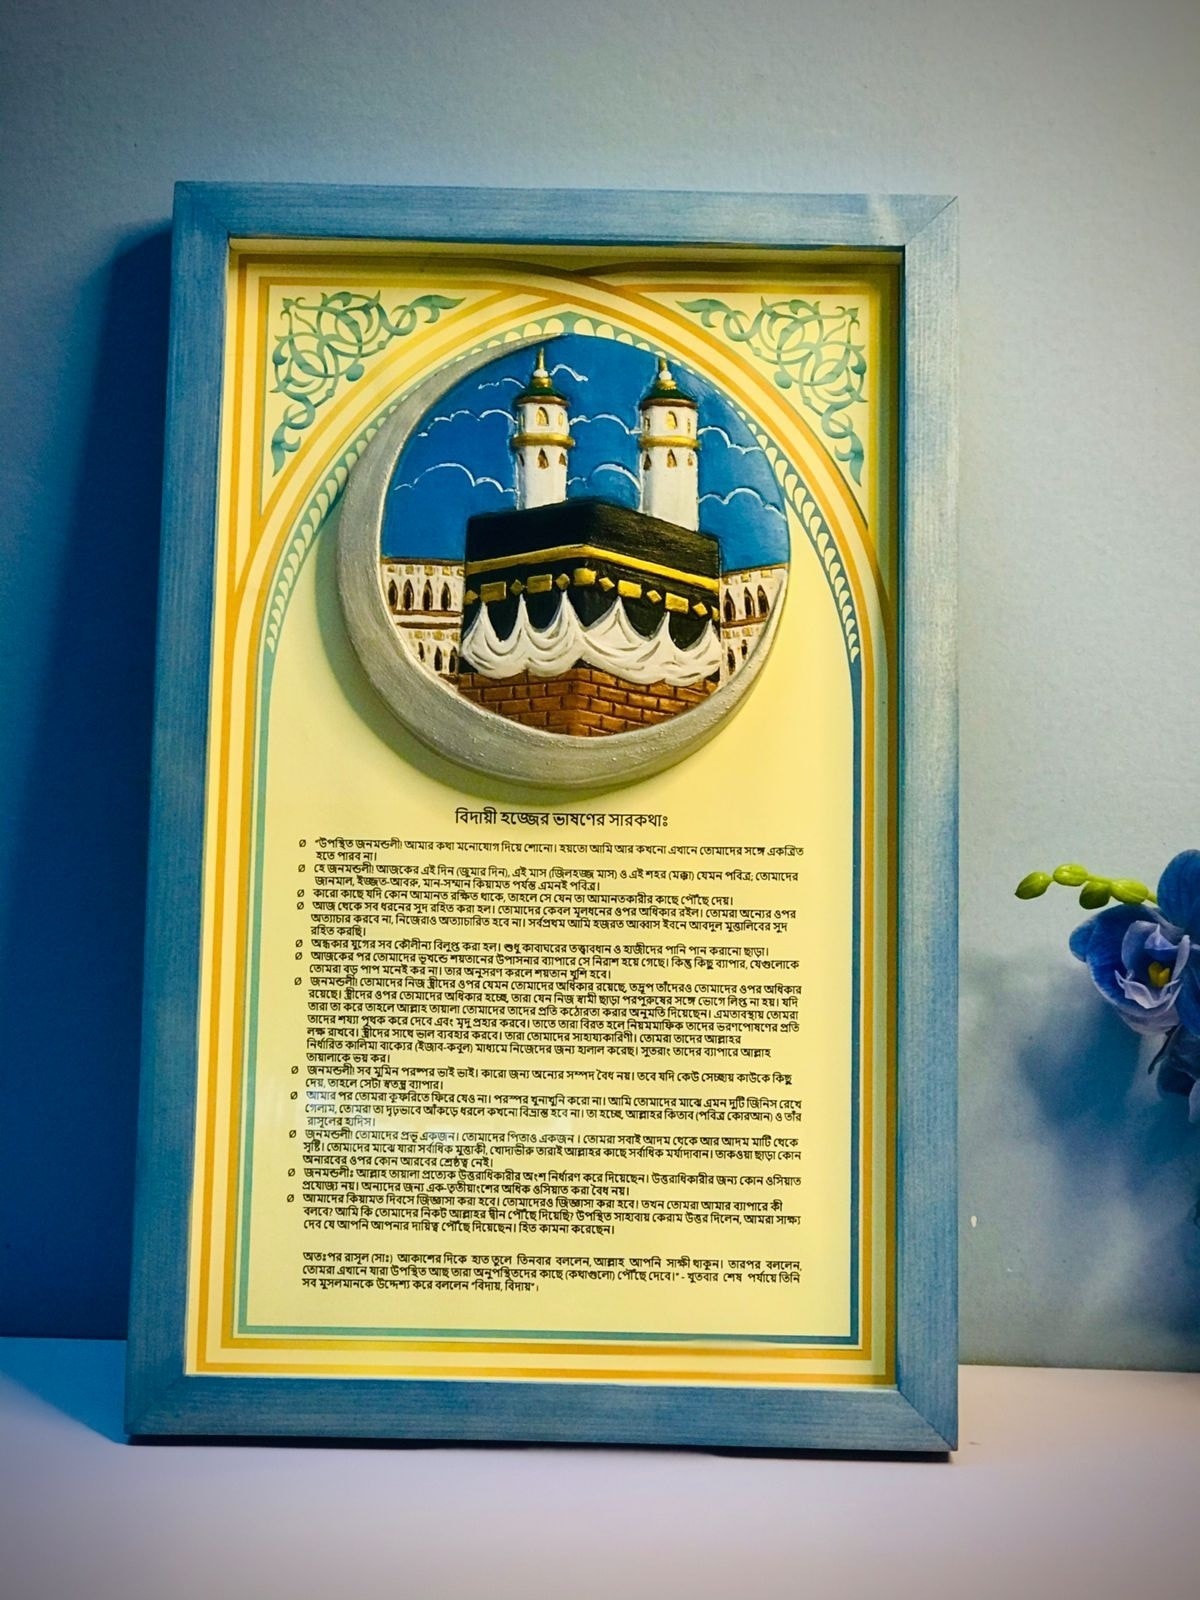 বিদায়ী হজ্জের ভাষণের সারকথাঃ
Ø "উপস্থিত জনমন্ডলী! আমার কথা মনোযোগ দিয়ে শোনো। হয়তো আমি আর কখনো এখানে তোমাদের সঙ্গে একত্রিত
হতে পারব না।
Ø হে জনমন্ডলী! আজকের এই দিন (জুমার দিন), এই মাস (জিলহজ্জ মাস) ও এই শহর (মক্কা) যেমন পবিত্র; তোমাদের
জানমাল, ইজ্জত-আবরু, মান-সম্মান কিয়ামত পর্যন্ত এমনই পবিত্র।
Ø কারো কাছে যদি কোন আমানত রক্ষিত থাকে, তাহলে সে যেন তা আমানতকারীর কাছে পৌঁছে দেয়।
Ø আজ থেকে সব ধরনের সুদ রহিত করা হল। তোমাদের কেবল মূলধনের ওপর অধিকার রইল। তোমরা অন্যের ওপর
অত্যাচার করবে না, নিজেরাও অত্যাচারিত হবে না। সর্বপ্রথম আমি হজরত আব্বাস ইবনে আবদুল মুত্তালিবের সুদ
রহিত করছি।
Ø অন্ধকার যুগের সব কৌলীন্য বিলুপ্ত করা হল। শুধু কাবাঘরের তত্ত্বাবধান ও হাজীদের পানি পান করানো ছাড়া।
Ø আজকের পর তোমাদের ভূখন্ডে শয়তানের উপাসনার ব্যাপারে সে নিরাশ হয়ে গেছে। কিন্তু কিছু ব্যাপার, যেগুলোকে
তোমরা বড় পাপ মনেই কর না। তার অনুসরণ করলে শয়তান খুশি হবে।
Ø জনমন্ডলী! তোমাদের নিজ স্ত্রীদের ওপর যেমন তোমাদের অধিকার রয়েছে, তদ্রুপ তাঁদেরও তোমাদের ওপর অধিকার
রয়েছে। স্ত্রীদের ওপর তোমাদের অধিকার হচ্ছে, তারা যেন নিজ স্বামী ছাড়া পরপুরুষের সঙ্গে ভোগে লিপ্ত না হয়। যদি
তারা তা করে তাহলে আল্লাহ তায়ালা তোমাদের তাদের প্রতি কঠোরতা করার অনুমতি দিয়েছেন। এমতাবস্থায় তোমরা
তাদের শয্যা পৃথক করে দেবে এবং মৃদু প্রহার করবে। তাতে তারা বিরত হলে নিয়মমাফিক তাদের ভরণপোষণের প্রতি
লক্ষ রাখবে। স্ত্রীদের সাথে ভাল ব্যবহার করবে। তারা তোমাদের সাহায্যকারিণী। তোমরা তাদের আল্লাহর
নির্ধারিত কালিমা বাক্যের (ইজাব-কবুল) মাধ্যমে নিজেদের জন্য হালাল করেছ। সুতরাং তাদের ব্যাপারে আল্লাহ
তায়ালাকে ভয় কর।
Ø জনমন্ডলী! সব মুমিন পরস্পর ভাই ভাই। কারো জন্য অন্যের সম্পদ বৈধ নয়। তবে যদি কেউ সেচ্ছায় কাউকে কিছু
দেয়, তাহলে সেটা স্বতন্ত্র ব্যাপার।
Ø আমার পর তোমরা কুফরিতে ফিরে যেও না। পরস্পর খুনাখুনি করো না। আমি তোমাদের মাঝে এমন দুটি জিনিস রেখে
গেলাম, তোমরা তা দৃঢ়ভাবে আঁকড়ে ধরলে কখনো বিভ্রান্ত হবে না। তা হচ্ছে, আল্লাহর কিতাব (পবিত্র কোরআন) ও তাঁর
রাসূলের হাদিস।
Ø জনমন্ডলী! তোমাদের প্রভু একজন। তোমাদের পিতাও একজন । তোমরা সবাই আদম থেকে আর আদম মাটি থেকে
সৃষ্টি। তোমাদের মাঝে যারা সর্বাধিক মুত্তাকী, খোদাভীরু তারাই আল্লাহর কাছে সর্বাধিক মর্যাদাবান। তাকওয়া ছাড়া কোন
অনারবের ওপর কোন আরবের শ্রেষ্ঠত্ব নেই।
Ø জনমন্ডলীঃ আল্লাহ তায়ালা প্রত্যেক উত্তরাধিকারীর অংশ নির্ধারণ করে দিয়েছেন। উত্তরাধিকারীর জন্য কোন ওসিয়াত
প্রযোজ্য নয়। অন্যদের জন্য এক-তৃতীয়াংশের অধিক ওসিয়াত করা বৈধ নয়।
Ø আমাদের কিয়ামত দিবসে জিজ্ঞাসা করা হবে। তোমাদেরও জিজ্ঞাসা করা হবে। তখন তোমরা আমার ব্যাপারে কী
বলবে? আমি কি তোমাদের নিকট আল্লাহর দ্বীন পৌঁছে দিয়েছি? উপস্থিত সাহাবায় কেরাম উত্তর দিলেন, আমরা সাক্ষ্য
দেব যে আপনি আপনার দায়িত্ব পৌঁছে দিয়েছেন। হিত কামনা করেছেন।
অতঃপর রাসূল (সাঃ) আকাশের দিকে হাত তুলে তিনবার বললেন, আল্লাহ আপনি সাক্ষী থাকুন। তারপর বললেন,
তোমরা এখানে যারা উপস্থিত আছ তারা অনুপস্থিতদের কাছে (কথাগুলো) পৌঁছে দেবে।" - খুতবার শেষ পর্যায়ে তিনি
সব মুসলমানকে উদ্দেশ্য করে বললেন "বিদায়, বিদায়"।